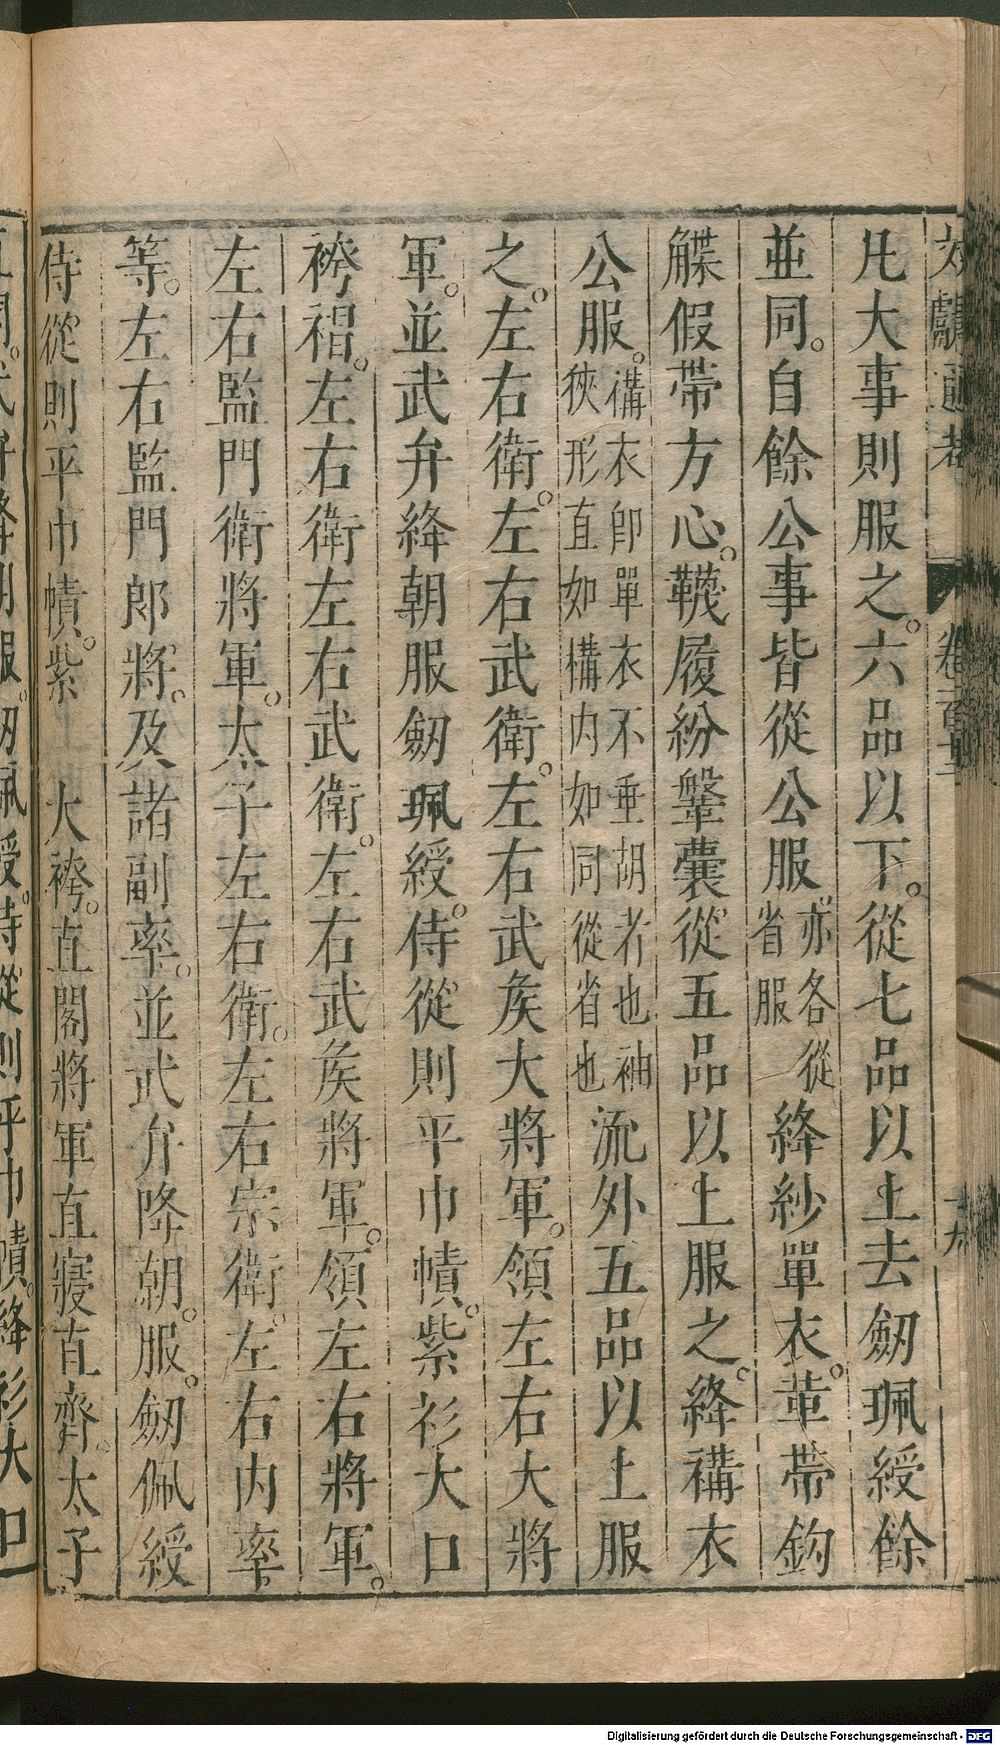 文獻通考 卷一百十 十九
凡大事則服之。六品以下。從七品以上去劒珮綬餘
並同。自餘公事皆從公服。亦各從省服絳紗單衣。革帶鈎
䚢假帶方心。韈履紛鞶囊從五品以上服之。絳褠衣
公服。褠衣即單衣不垂胡者也袖狹形直如構内如同從省也流外五品以上服
之。左右衛。左右武衛。左右武矦大將軍。領左右大將
軍。並武弁絳朝服劒珮綬。侍從則平巾幘。紫衫大口
袴褶。左右衛左右武衛。左右武矦將軍。領左右將軍。
左右監門衛將軍。太子左右衛。左右宗衛。左右内率
等。左右監門郎將。及諸副率。並武弁降朝。服。劒佩綬
侍從則平巾幘。紫 大袴。直閤將軍直寢直齊。太子
武弁絳朝服。劒珮綬。侍從則平巾幘。絳衫大口
Digitalisierung gefördert durch die Deutsche Forschungsgemeinschaft - DFG